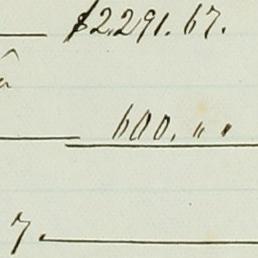 $2,291.67.
600. " "
7.